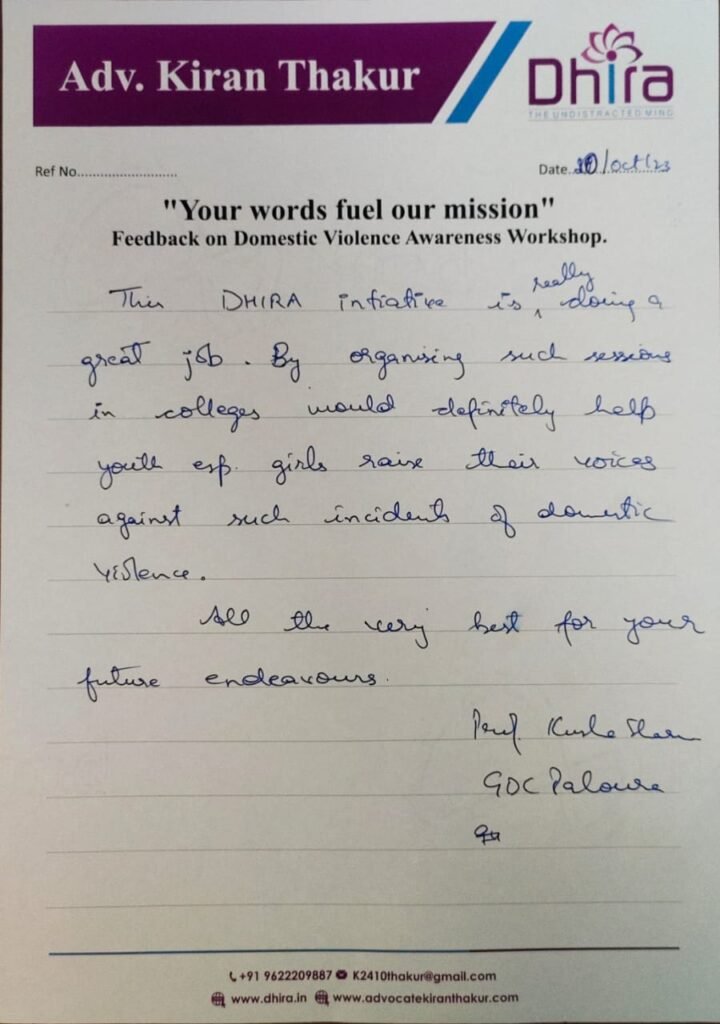 Adv. Kiran Thakur
Dhira
THE UNDISTRACTED MIND
Ref No..........................
Date..20/Oct/23
"Your words fuel our mission"
Feedback on Domestic Violence Awareness Workshop.
This DHIRA intiative is really doing a
great job. By organising such sessions
in colleges would definitely help
youth esp. girls raise their voices
against such incidents of domestic
violence.
All the very best for your
future endeavours.
Prof.
GDC Paloura
+91 9622209887 K2410thakur@gmail.com
www.dhira.in www.advocatekiranthakur.com